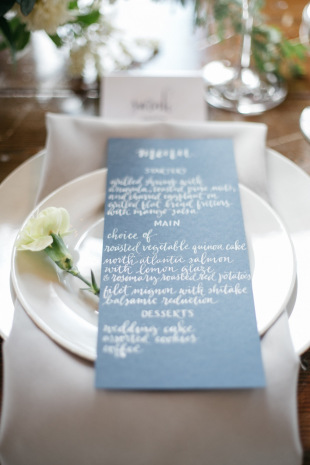 menu
STARTERS
grilled shrimp with
arugula, roasted pine nuts,
and shaved
grilled flat bread fritters
with mango salsa
MAIN
choice of
roasted vegetable quinoa cake
north atlantic salmon
with lemon glaze
& rosemary roasted red potatoes
filet mignon with shitake
balsamic reduction
DESSERTS
wedding cake
assorted cookies
coffee